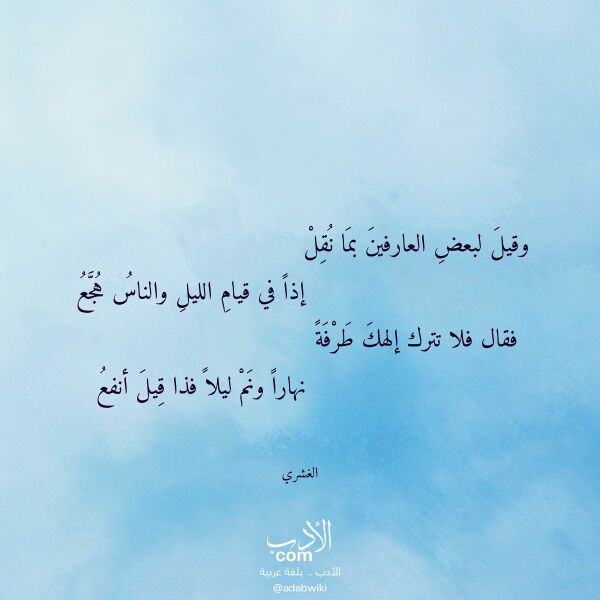 وقيلَ لبعضِ العارفينَ بمَا نُقِلْ
إذاً في قيامِ الليلِ والناسُ هُجَّعُ
فقال فلا تترك إلهكَ طَرْفَةً
نهاراً ونَمْ ليلاً فذا قِيلَ أنفعُ
الغشري
الأدب
com
الأدب .. بلغة عربية
@adabwiki